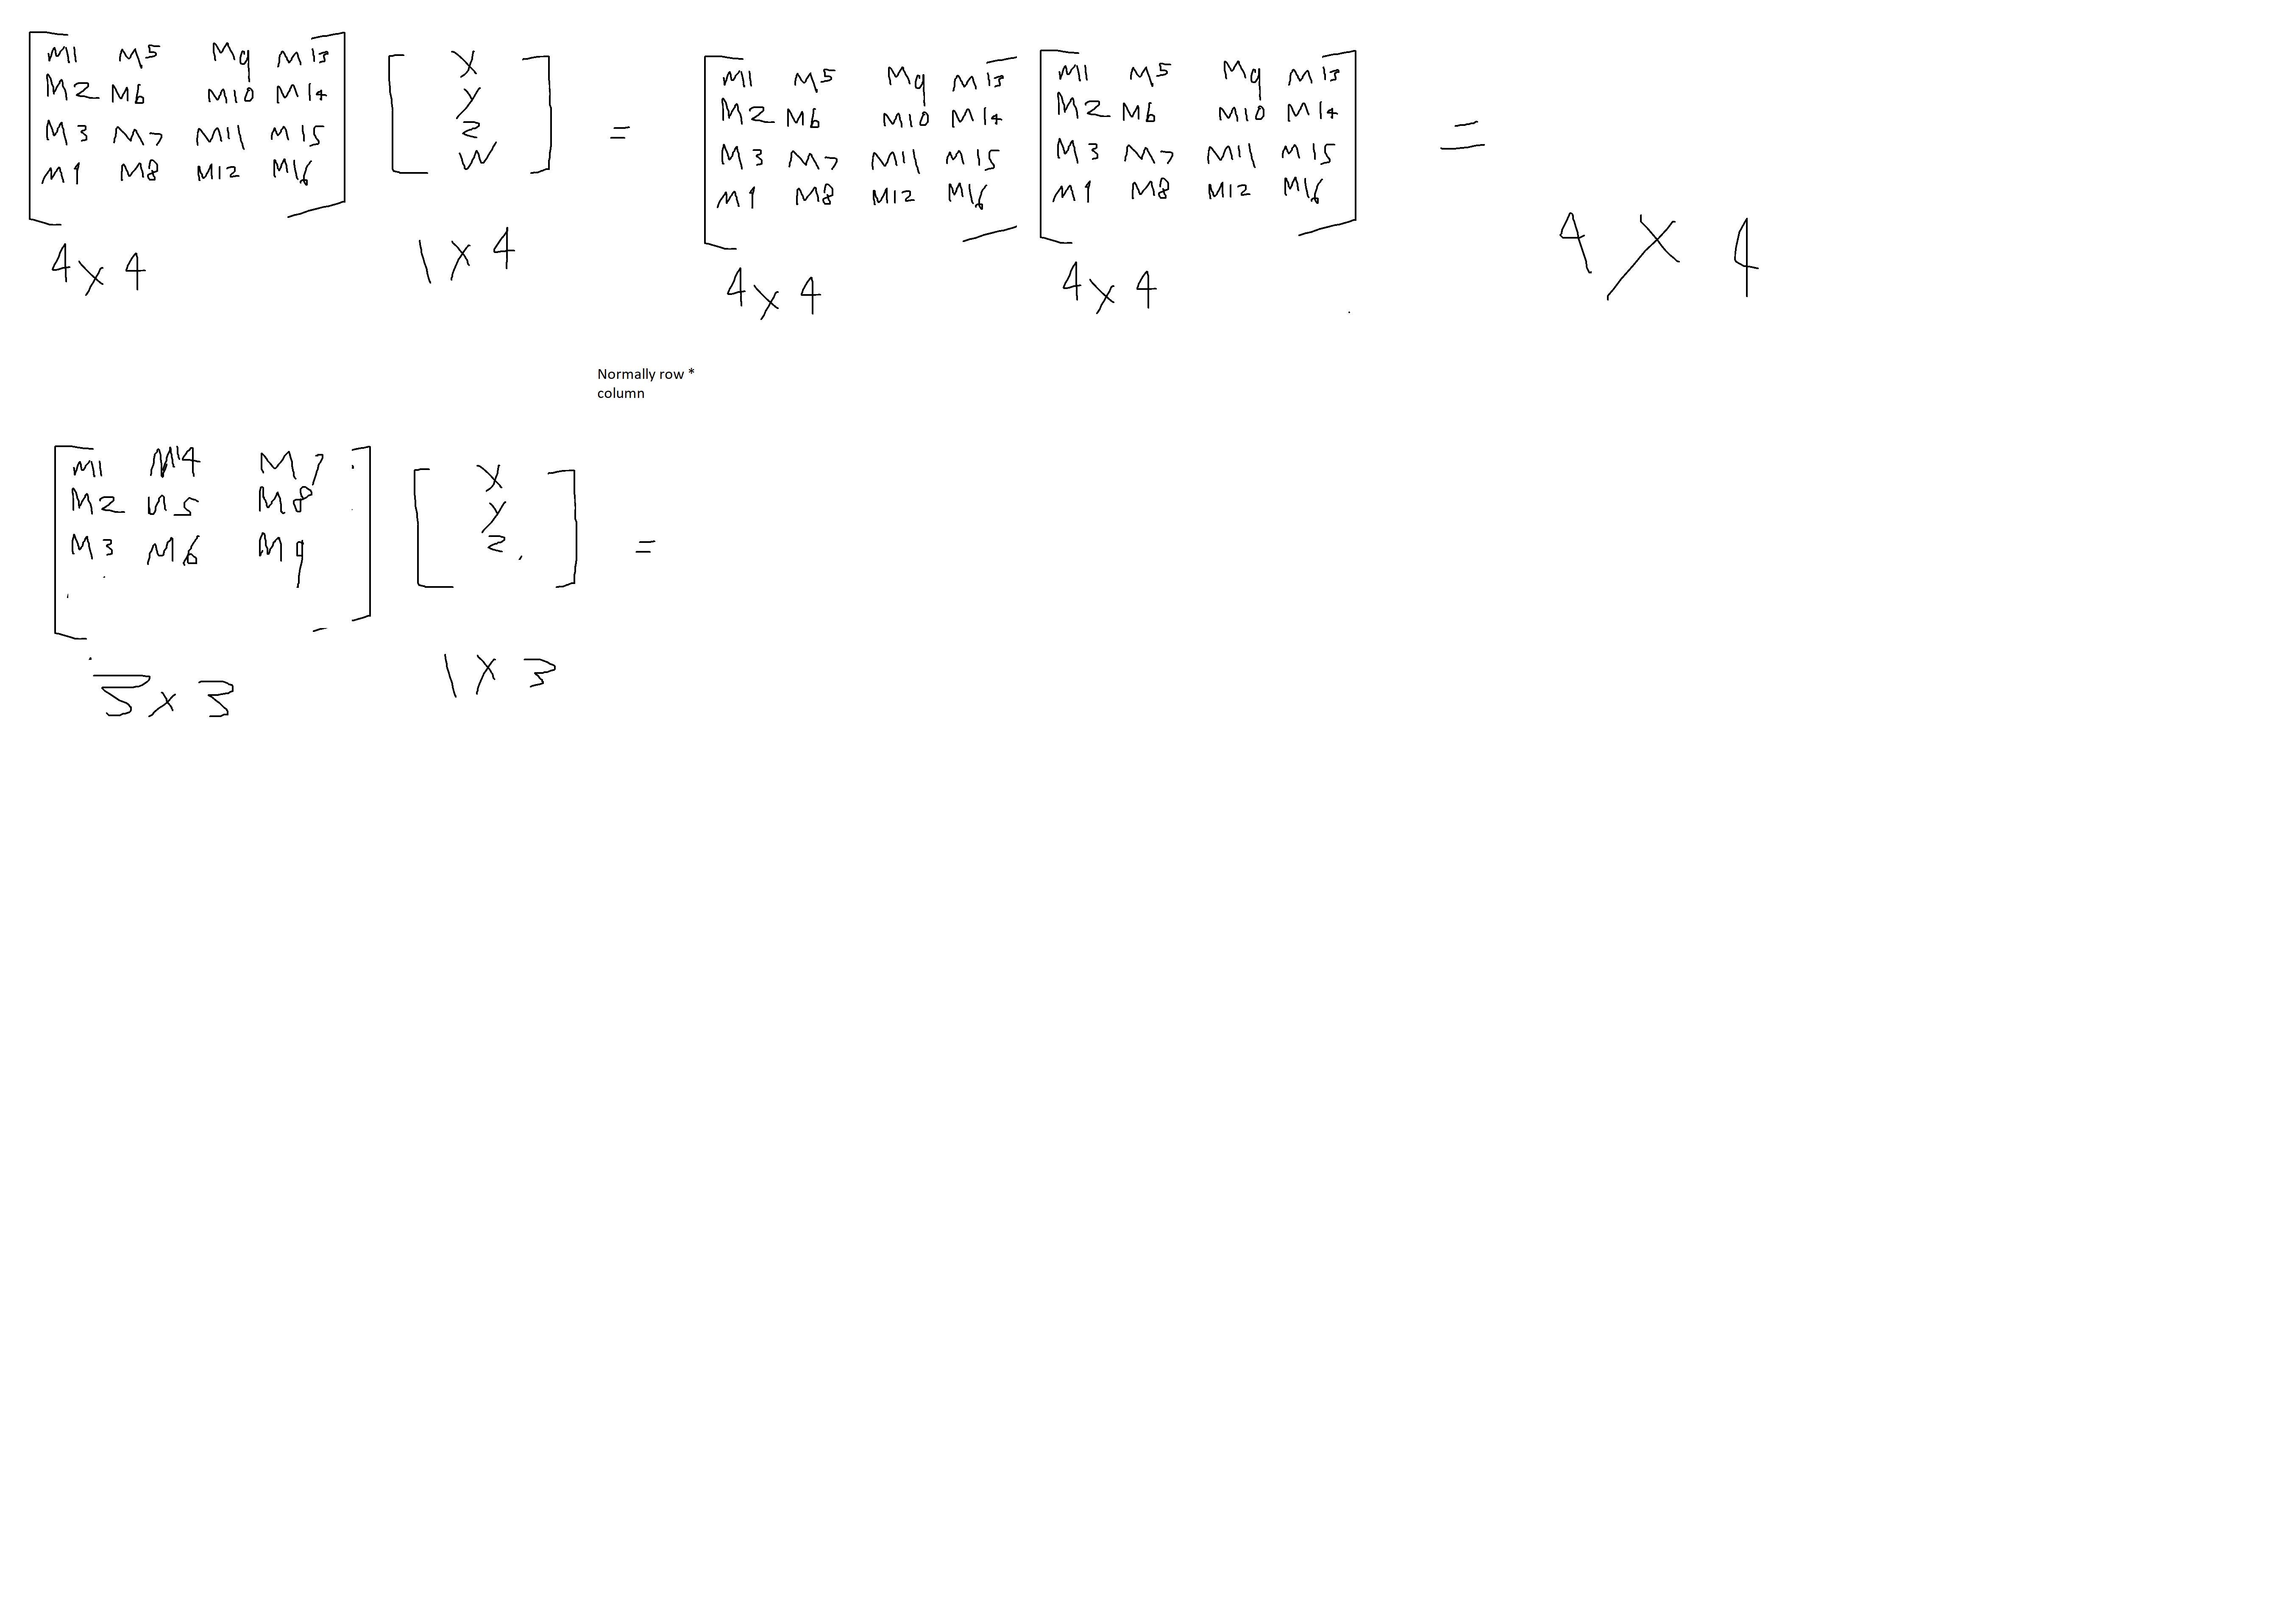 M1 M5 M9 M13
M2 M6 M10 M14
M3 M7 M11 M15
M4 M8 M12 M16
4 x 4
X
y
z
W
1 x 4
=
M1 M5 M9 M13
M2 M6 M10 M14
M3 M7 M11 M15
M4 M8 M12 M16
4 x 4
M1 M5 M9 M13
M2 M6 M10 M14
M3 M7 M11 M15
M4 M8 M12 M16
4 x 4
=
4 X 4
Normally row *
column
M1 M4 M7
M2 M5 M8
M3 M6 M9
3 x 3
X
y
z
1 x 3
=